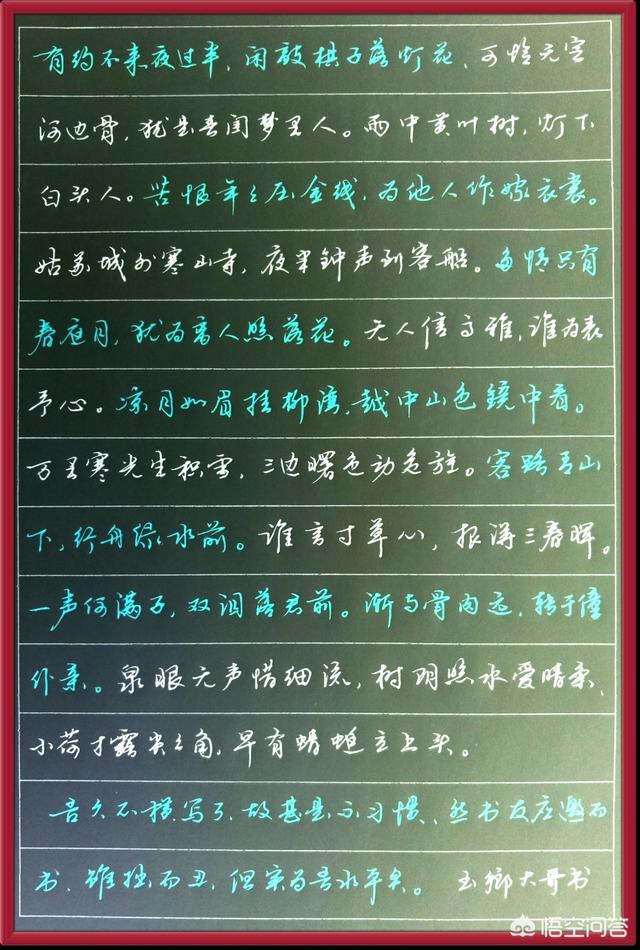 有约不来夜过半，闲敲棋子落灯花、可怜无定
河边骨，犹是春闺梦里人。雨中黄叶树，灯下
白头人。苦恨年年压金线，为他人作嫁衣裳。
姑苏城外寒山寺，夜半钟声到客船。多情只有
春庭月，犹为离人照落花。无人信高雅，谁为表
予心。凉月如眉挂柳湾，越中山色镜中看。
万里寒光生积雪，三边曙色动危旌。客路青山
下，行舟绿水前。谁言寸草心，报得三春晖。
一声何满子，双泪落君前。渐与骨肉远，转于僮
仆亲。泉眼无声惜细流，树阴照水爱晴柔、
小荷才露尖尖角，早有蜻蜓立上头。
吾久不横写了，故甚是不习惯、然书友应邀而
书、虽拙而丑，但实为吾水平矣。 玉乡大哥书
悟空问答